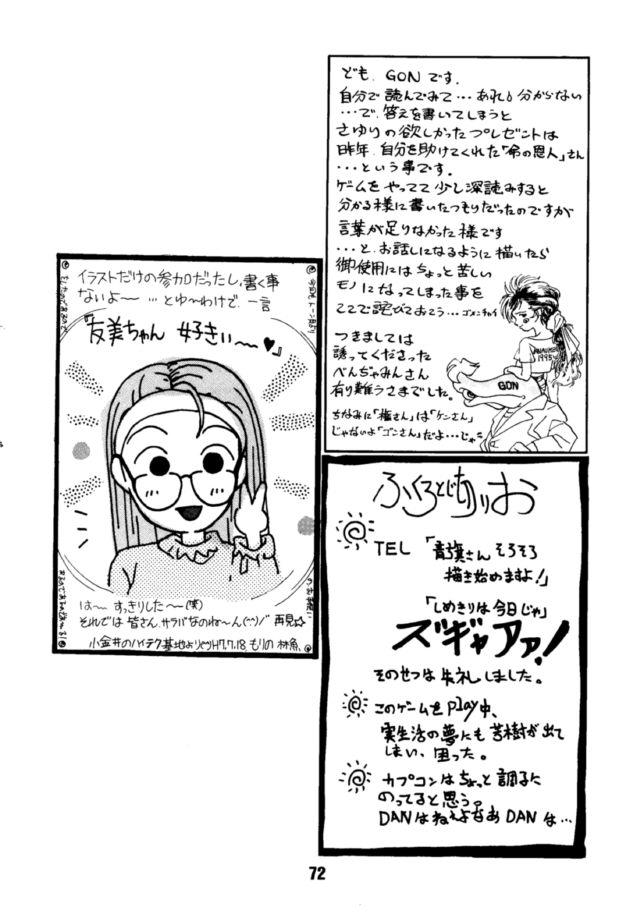 ども、GONです。
自分で読んでみて…あれ？分からない
…で、答えを書いてしまうと
さゆりの欲しかったプレゼントは
昨年、自分を助けてくれた「命の恩人」さん
…という事です。
ゲームをやってて少し深読みすると
分かる様に書いたつもりだったのですが
言葉が足りなかった様です
…と、お話しになるように描いたら
御使用にはちょっと苦しい
モノになってしまった事を
ここで詫びておこう…ゴメンチャイ
つきましては
誘ってくださった
べんぢゃみんさん
有り難うさまでした。
ちなみに「権さん」は「ケンさん」
じゃないよ「ゴンさん」だよ…じゃ
1995
GON
イラストだけの参加だったし、書く事
ないよ〜 …とゆ〜わけで、一言
『友美ちゃん 好きぃ〜〜♥』
は〜〜 すっきりした〜(笑)
それでは皆さん、サラバなのね〜ん(^^)/ 再見☆
小金井のハイテク基地よりH7.7.18. もりの 林魚
ふくろとじきりお
TEL「青旗さんそろそろ
描き始めますよ！」
「しめきりは今日じゃ」
ズギャアァ！
そのせつは失礼しました。
このゲームをplay中、
実生活の夢にも苦樹が出て
しまい、困った。
カプコンはちょっと調子に
のってると思う。
DANはねえよなあDANは…
72